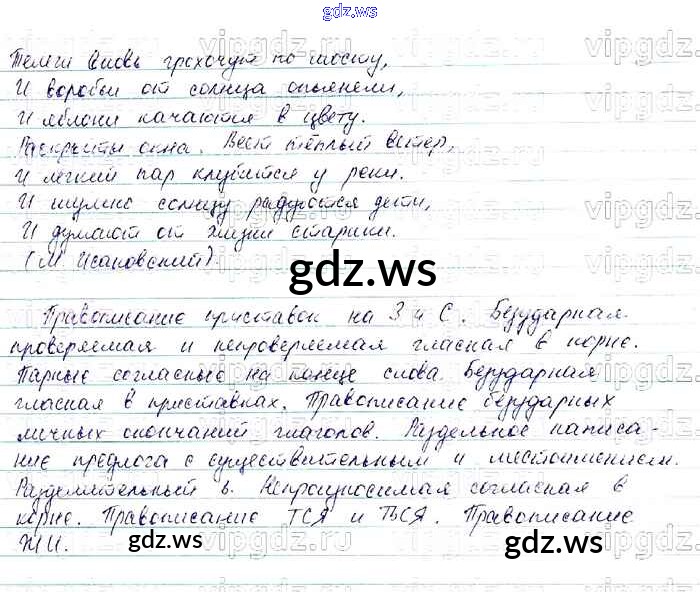 gdz.ws
Телеги вновь грохочут по мосту,
И воробьи от солнца опьянели,
И яблони качаются в цвету.
Раскрыты окна. Веет тёплый ветер,
И легкий пар клубится у реки.
И шумно солнцу радуются дети,
И думают от жизни старики.
(М Исаковский).
gdz.ws
Правописание приставок на З и С. Безударная
проверяемая и непроверяемая гласная в корне.
Парные согласные на конце слова. Безударная
гласная в приставках. Правописание безударных
личных окончаний глаголов. Раздельное написа-
ние предлога с существительным и местоимением.
Разделительный ь. Непроизносимая согласная в
корне. Правописание ТСЯ и ТЬСЯ. Правописание
ЖИ.
gdz.ws
gdz.ws